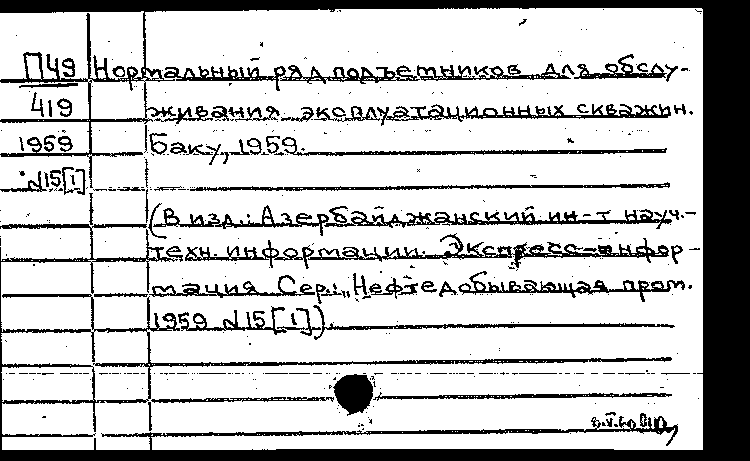 П49 Нормальный ряд подъемников для обслу-
419 живания эксплуатационных скважин.
1959 Баку, 1959.
№15[1]
(В изд.: Азербайджанский ин-т науч.-
техн. информации. Экспресс-инфор-
мация Сер.: „Нефтедобывающая пром.
1959 №15[1]).